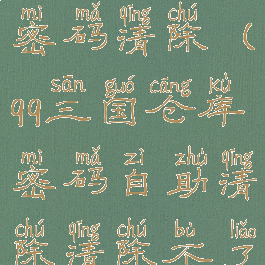 mì mǎ qīng chú
密码清除（
sān guó cāng kù
99三国仓库
mì mǎ zì zhù qīng
密码自助清
chú qīng chú bù liǎo
除清除不了